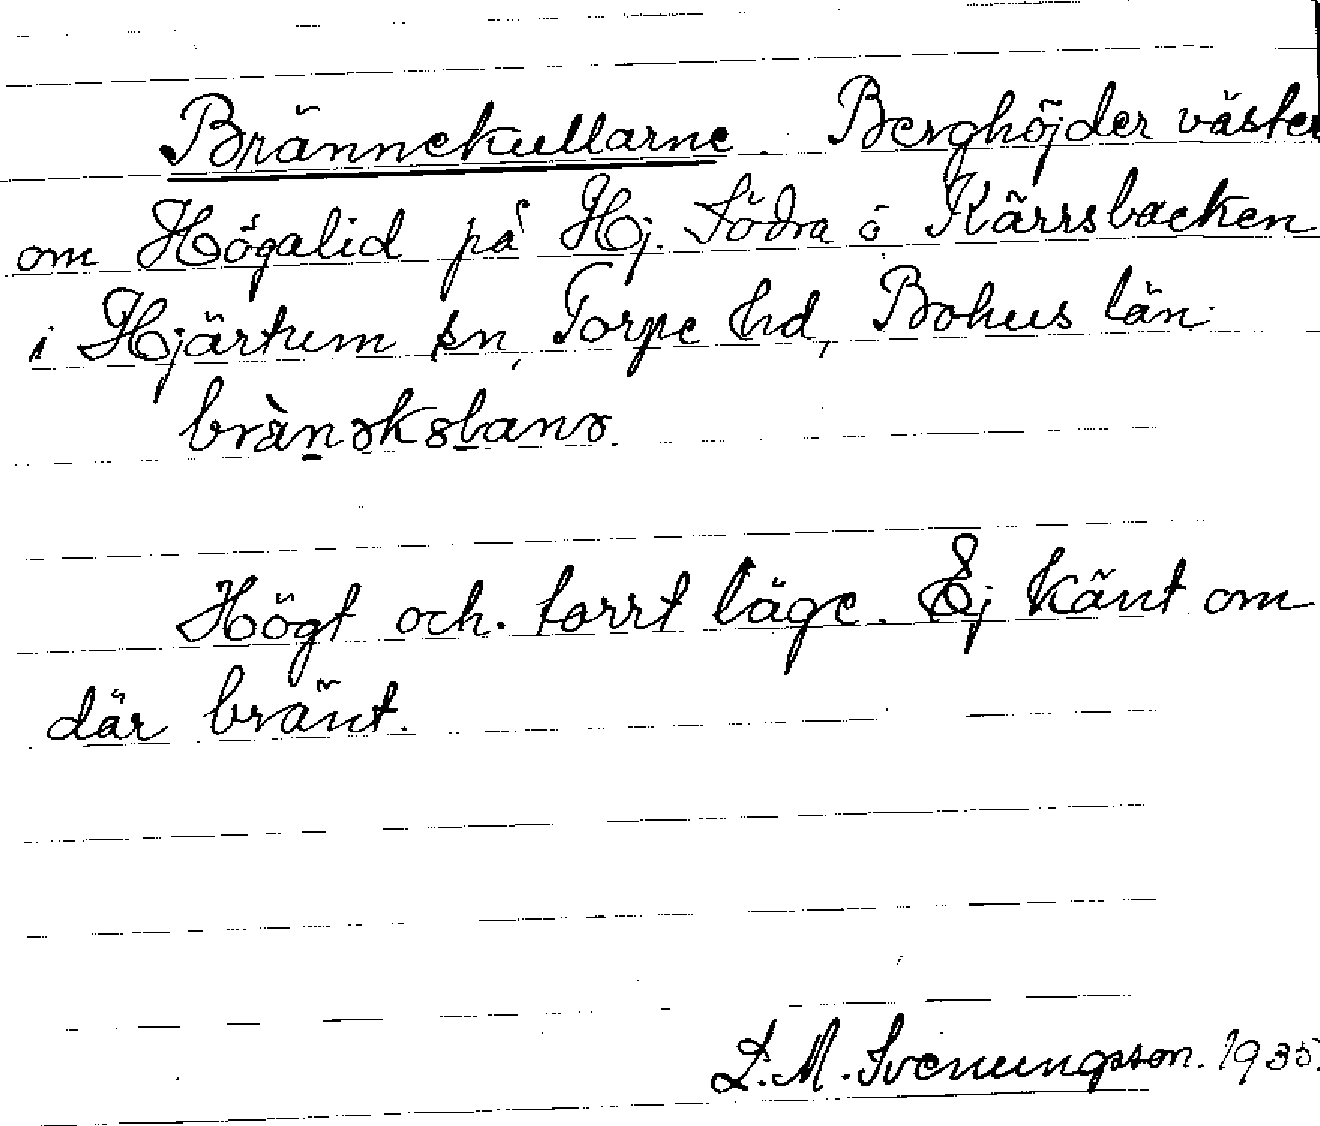 Brännekullarne. Berghöjder väster
om Högalid på Hj. Södra å Kärrsbacken
i Hjärtum sn, Torpe hd, Bohus län.
Högt och torrt läge. Ej känt om
där bränt.
L. M. Svenungsson. 1935.